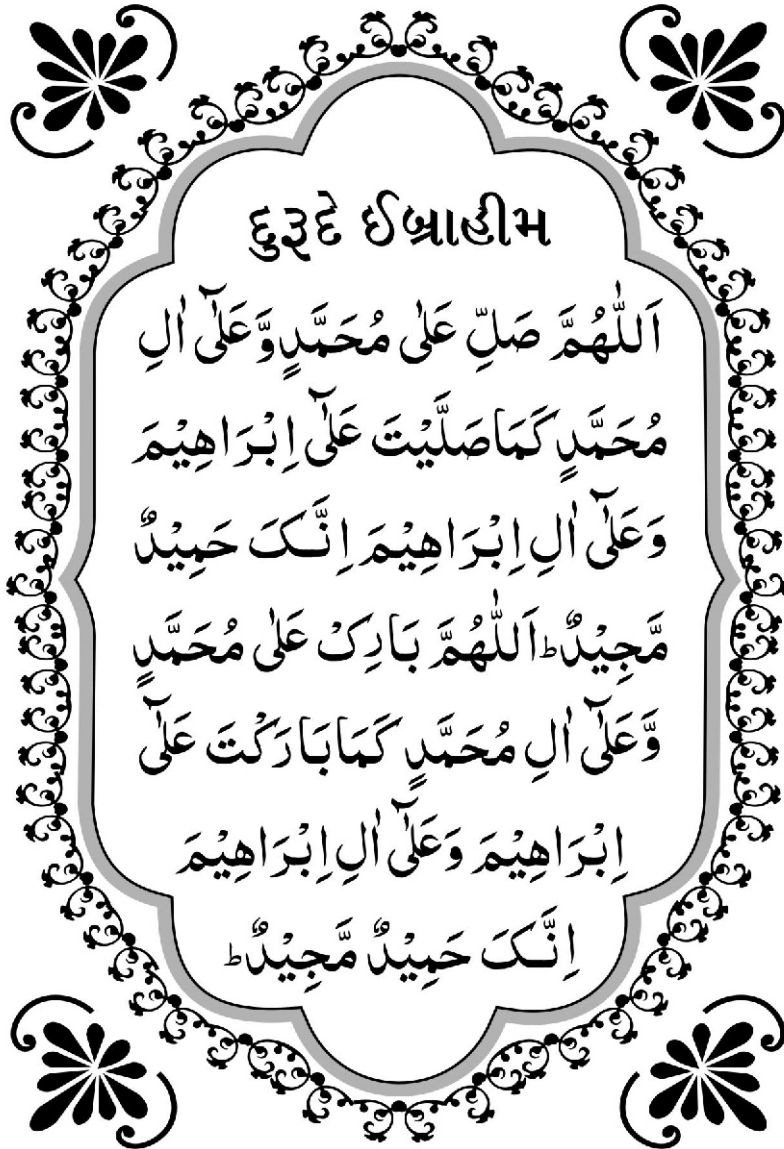 દુરૂદે ઈબ્રાહીમ
اَللّٰهُمَّ صَلِّ عَلٰى مُحَمَّدٍ وَّعَلٰٓى اٰلِ
مُحَمَّدٍ كَمَا صَلَّيْتَ عَلٰٓى اِبْرَاهِيْمَ
وَعَلٰٓى اٰلِ اِبْرَاهِيْمَ اِنَّکَ حَمِيْدٌ
مَّجِيْدٌ ؕ اَللّٰهُمَّ بَارِکْ عَلٰى مُحَمَّدٍ
وَّعَلٰٓى اٰلِ مُحَمَّدٍ كَمَا بَارَكْتَ عَلٰٓى
اِبْرَاهِيْمَ وَعَلٰٓى اٰلِ اِبْرَاهِيْمَ
اِنَّکَ حَمِيْدٌ مَّجِيْدٌ ؕ